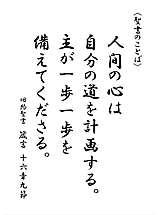 〈聖書のことば〉
人間の心は
自分の道を計画する。
主が一歩一歩を
備えてくださる。
旧約聖書 箴言 十六章九節